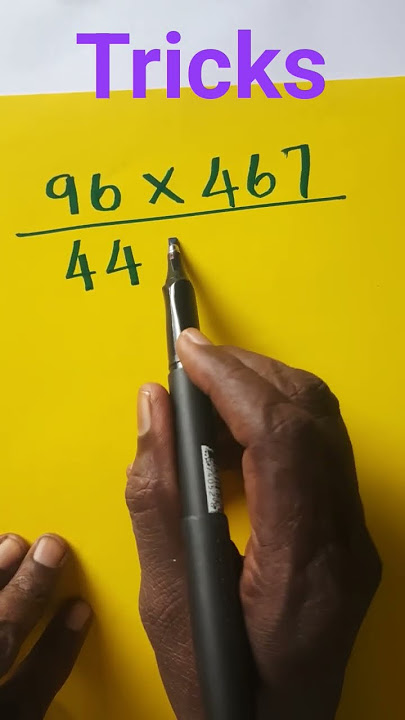 Tricks
96 × 467
44